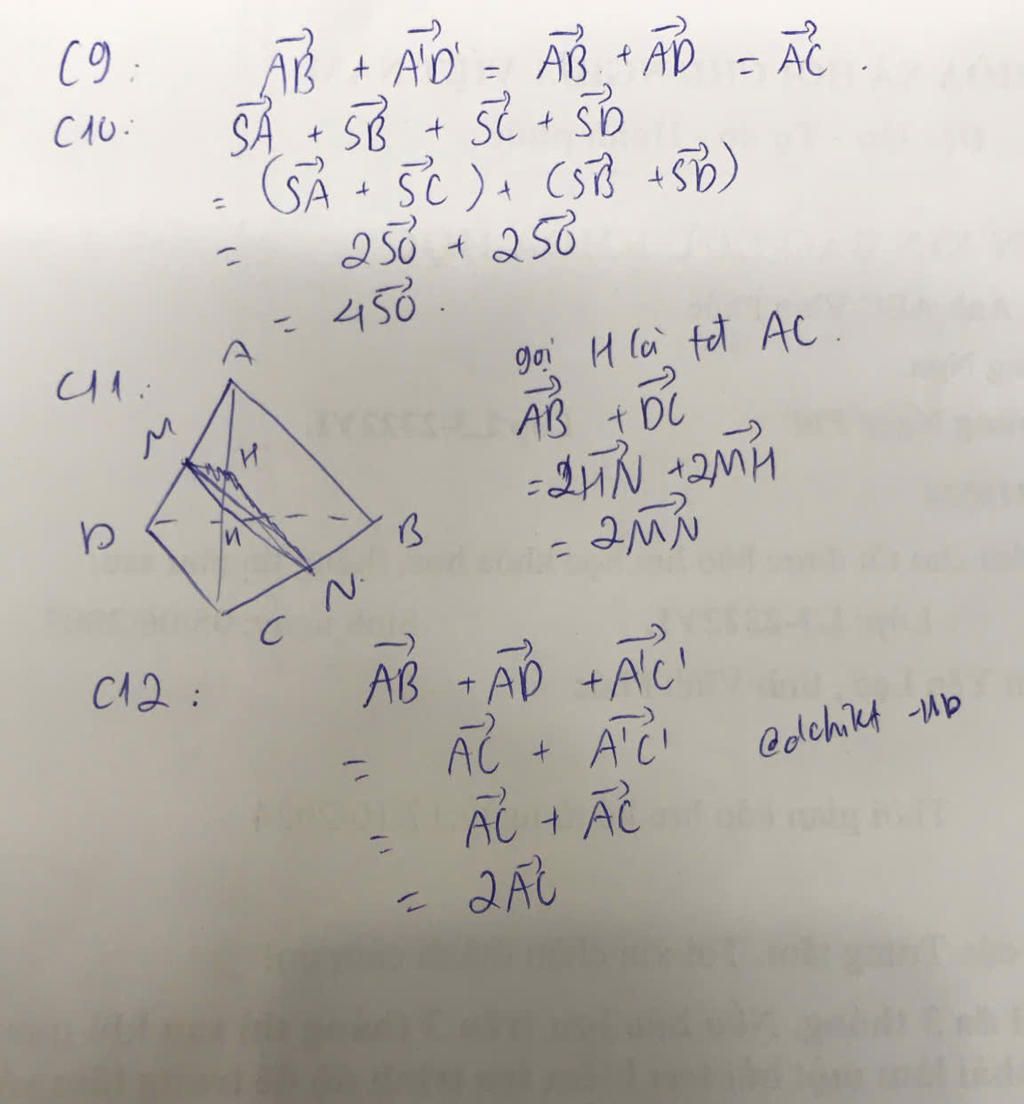 C9: AB + A'D' AB + AD = AC.
C10: SA + SB + SC + SD
= (SA + SC) + (SB + SD)
= 2SO + 2SO
= 4SO.
C11:
A
M
H
D
B
H
N
C
gọi H là tđ AC.
AB + DC
= 2HN + 2MH
= 2MN
C12: AB + AD + A'C'
= AC + A'C'
= AC + AC
= 2AC